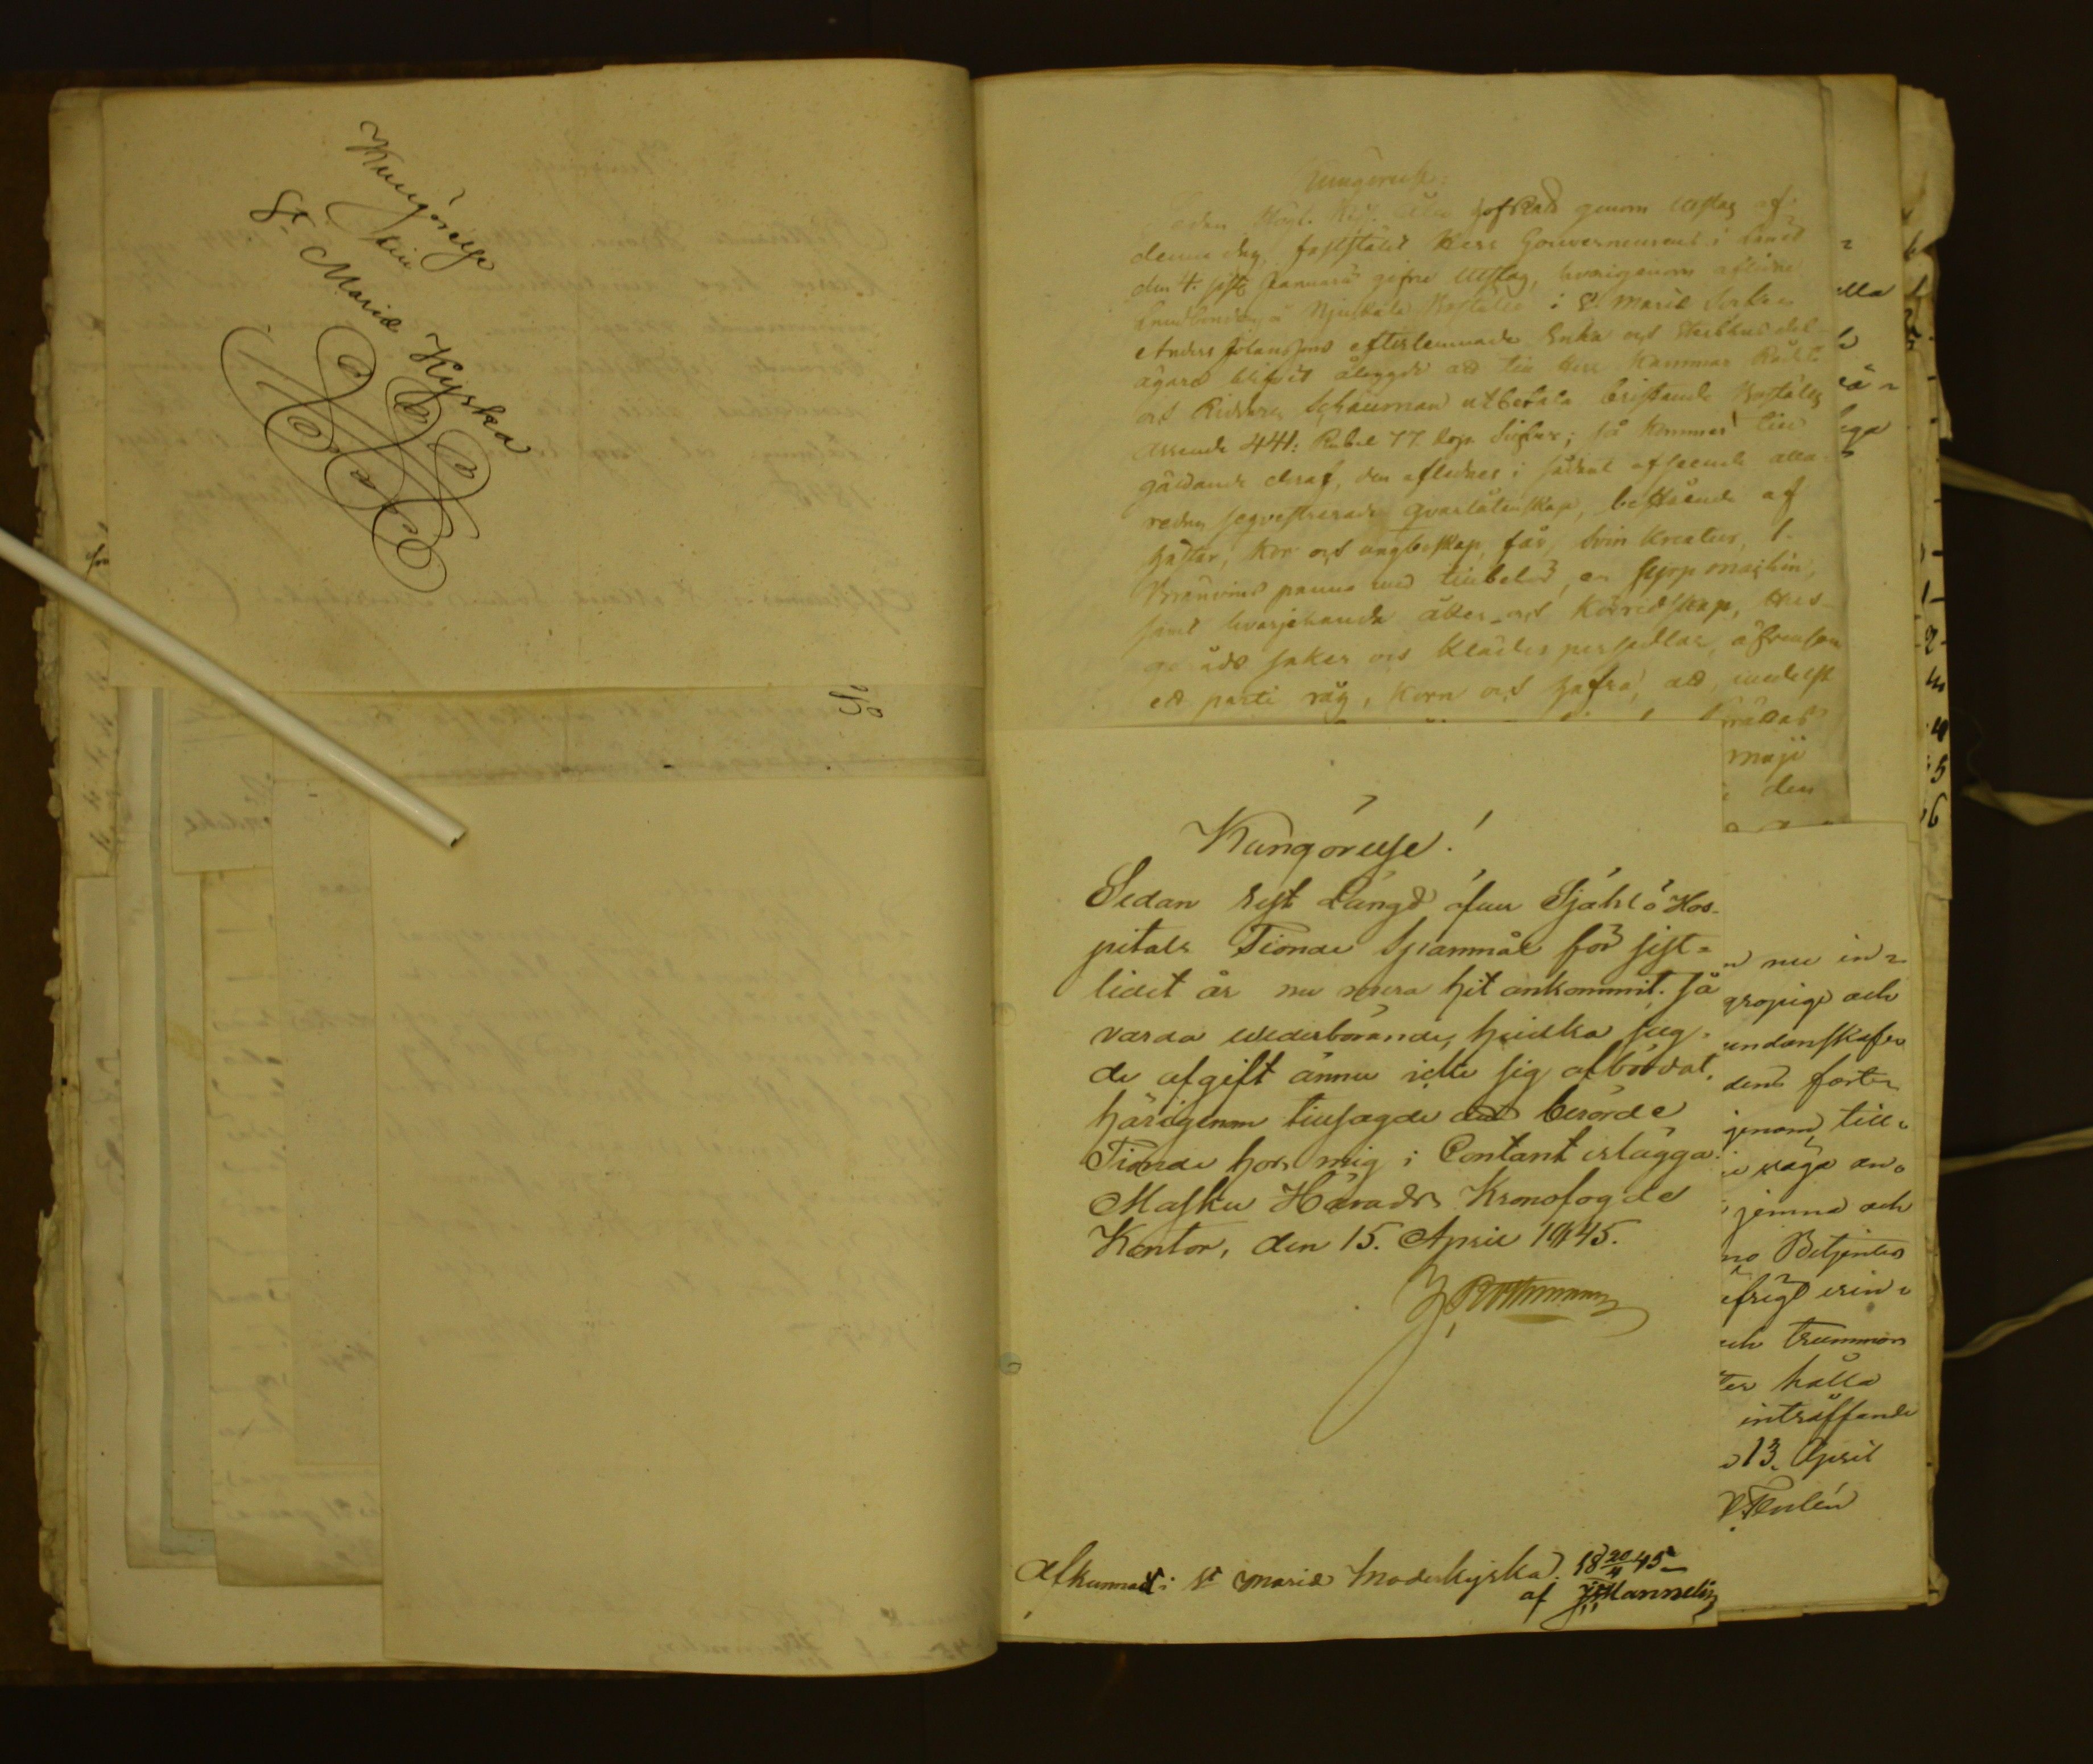 Kungörelse
till
St. Mariæ Kyrka
Kungörelse:
Sedan Högl. Kejs. Åbo HofRätt genom Utslag af
denna dag, fastställt Herr Gouverneurens i Länet
den 4. sistl. Januarii gifne Utslag, hvarigenom aflidne
Landbonden å Njuskala Boställe i St Mariæ Socken
Anders Johanssons efterlemnade Enka och Sterbhus del-
ägare blifvit ålagde att till Herr Kammar Rådet
och Riddaren Schauman utbetala bristande Boställs
arrende 441: Rubel 77 kop. Silfver; så kommer till
gäldande deraf, den aflidnes i sådant afseende alla-
redan seqvestrerade qvarlåtenskap, bestående af
hästar, kor och ungboskap, får, svin kreatur, 1.
Brännvins panna med tillbehör, en
samt hvarjehanda åker- och körredskap, Hus-
geråds saker och klädes persedlar, äfvensom
ett parti råg, korn och hafra, att medelst
maji
den
Kungörelse!
Sedan rest Längd öfver Själö Hos-
pitals Tionde Spannmål för sist-
lidet år nu mera hit ankommit. så
varda wederbörande, hvilka sag-
de afgift ännu icke sig afbördat,
härigenom tillsagde att berörde
Tionde hos mig i Contant erlägga.
Masku Härads Kronofogde
Kontor, den 15. April 1845.
Afkunnad i St Mariæ Moderkyrka. 18 20/4 45
af
nu in-
gropige och
undanskaffa
dens
genom till-
wäga an-
jemna och
Betjenter
erin-
och trummor
hålla
inträffande
13. April